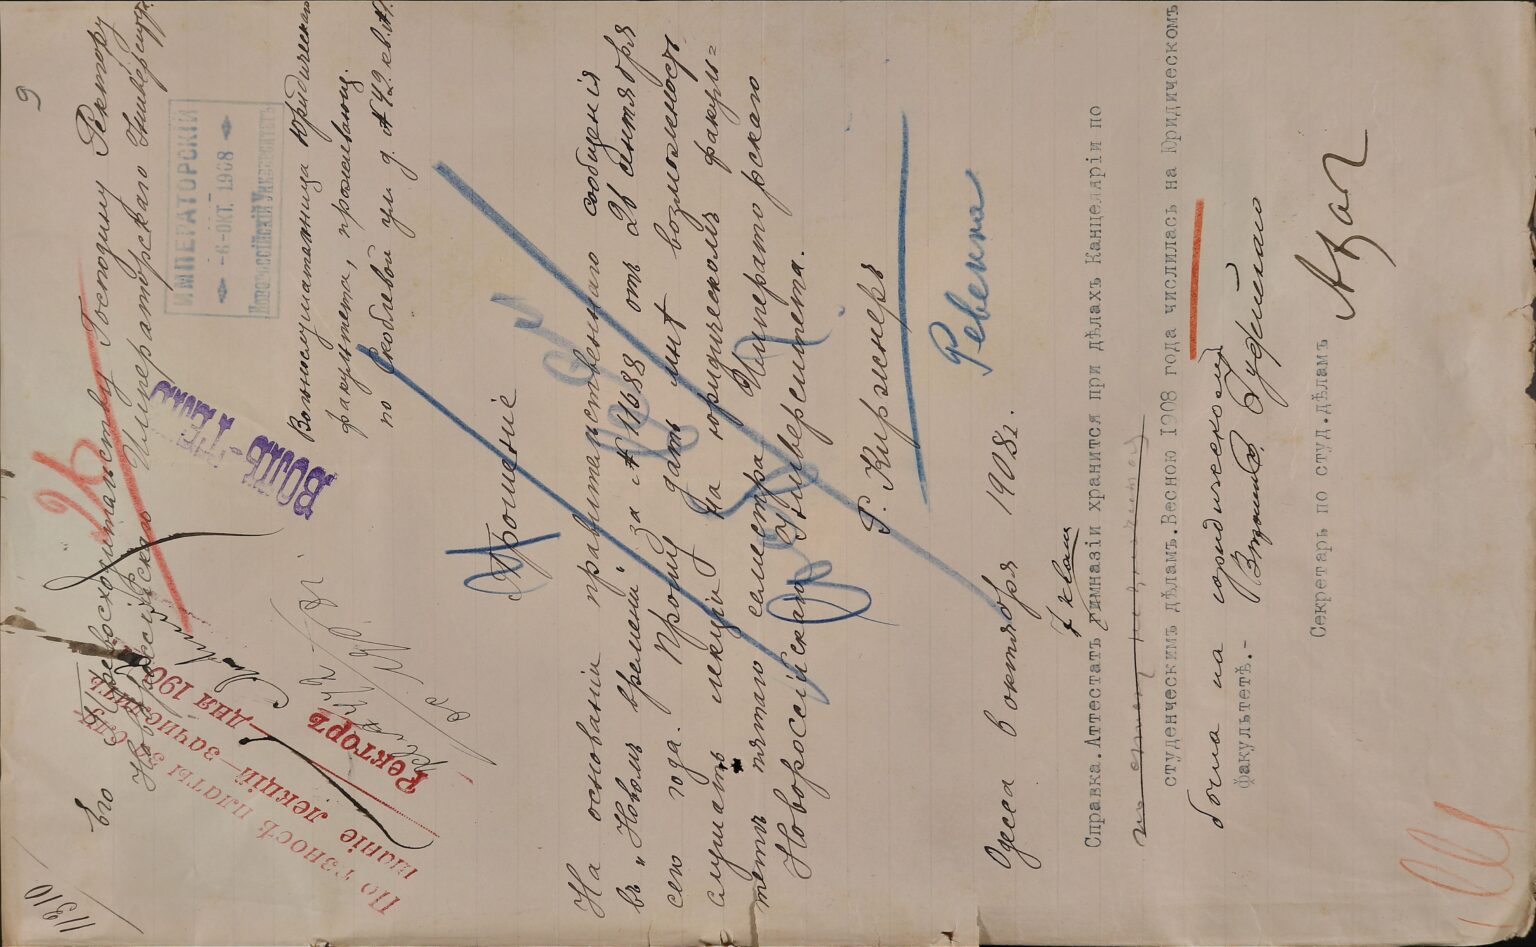 9
11310
Его Превосходительству Господину Ректору
Новороссійскаго Императорскаго Университета
ИМПЕРАТОРСКІЙ
-6-ОКТ. 1908
Новороссійскій Университетъ
26
ВОЛЬ
Вольнослушательница Юридическаго
факультета, проживающая
по Скоблевой ул д. №42 кв. №
По взносѣ платы за слу-
шаніе лекцій зачислить
дня 190
Ректоръ
Прошеніе
На основаніи правительственнаго сообщенія
въ „Новомъ времени" за № 11688 отъ 26 сентября
сего года. Прошу дать мнѣ возможность
слушать лекціи на юридическомъ факуль=
тетѣ пятаго семестра Императорскаго
Новороссійскаго Университета.
Г. Киржнеръ
Ревекка
Одесса 6 октября 1908г.
7 клас
Справка. Аттестатъ гимназіи хранится при дѣлахъ Канцеляріи по
студенческимъ дѣламъ. Весною 1908 года числилась на Юридическомъ
была на юридическомъ
факультетѣ.-
Секретарь по студ. дѣламъ